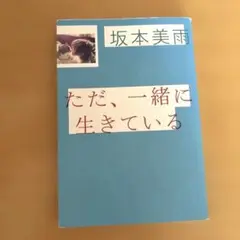 坂本美雨
ただ、一緒に
生きている